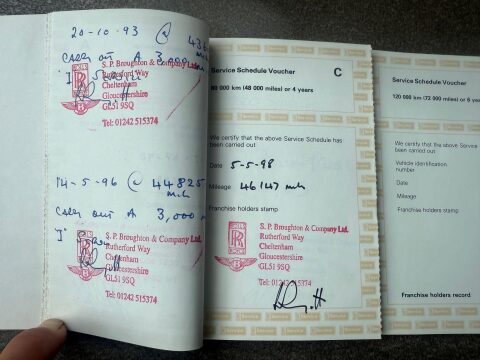 20-10-93 @ 436
mls
carry out A 3,000 mls
'I' Service
S. P. Broughton & Company Ltd.
Rutherford Way
Cheltenham
Gloucestershire
GL51 9SQ
Tel: 01242 515374
14-5-96 @ 44825
mls
carry out A 3,000 m
'I'
S. P. Broughton & Company Ltd.
Rutherford Way
Cheltenham
Gloucestershire
GL51 9SQ
Tel: 01242 515374
Service Schedule Voucher C
80 000 km (48 000 miles) or 4 years
We certify that the above Service Schedule has
been carried out
Date 5-5-98
Mileage 46147 mls
Franchise holders stamp
S. P. Broughton & Company Ltd.
Rutherford Way
Cheltenham
Gloucestershire
GL51 9SQ
Tel: 01242 515374
Service Schedule Voucher
120 000 km (72 000 miles) or 6 years
We certify that the above Service
been carried out
Vehicle identification
number
Date
Mileage
Franchise holders stamp
Franchise holders record